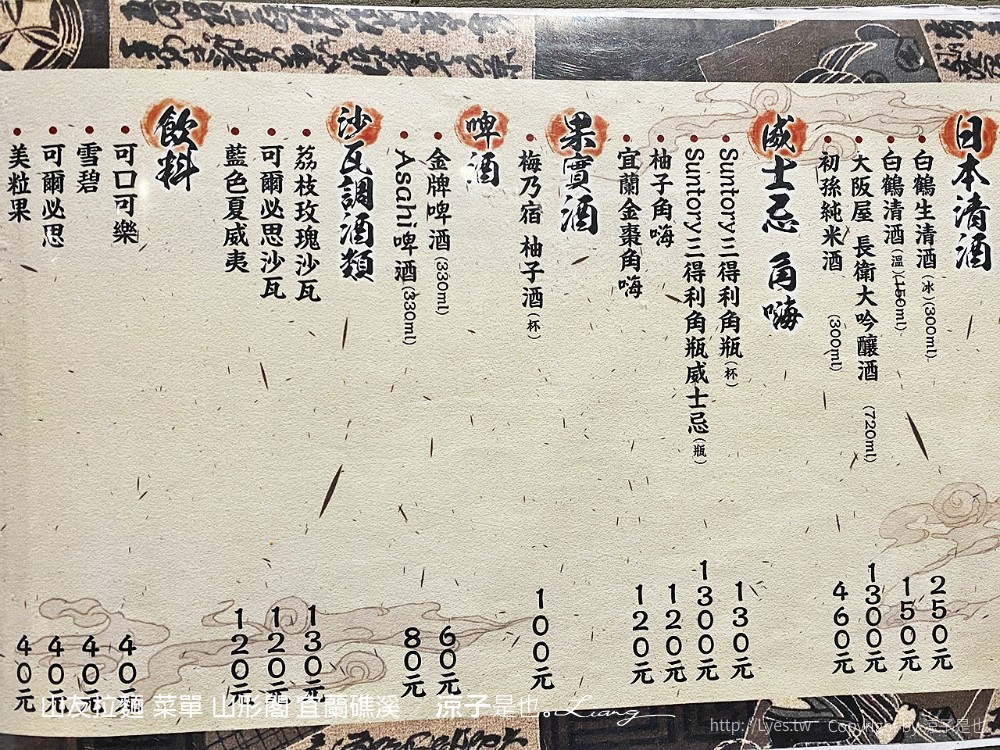 日本清酒
白鶴生清酒(冰)(300ml) 250元
白鶴清酒(溫)(150ml) 150元
大阪屋 長衛大吟釀酒 (720ml) 1300元
初孫純米酒 (300ml) 460元
威士忌 角嗨
Suntory三得利角瓶(杯) 130元
Suntory三得利角瓶威士忌(瓶) 1300元
柚子角嗨 120元
宜蘭金棗角嗨 120元
果實酒
梅乃宿 柚子酒(杯) 100元
啤酒
金牌啤酒(330ml) 60元
Asahi啤酒(330ml) 80元
沙瓦調酒類
荔枝玫瑰沙瓦 130元
可爾必思沙瓦 120元
藍色夏威夷 120元
飲料
可口可樂 40元
雪碧 40元
可爾必思 40元
美粒果 40元
山友拉麵 菜單 山形閣 宜蘭礁溪 涼子是也。Liang
http://Lyes.tw Copyright by 涼子是也